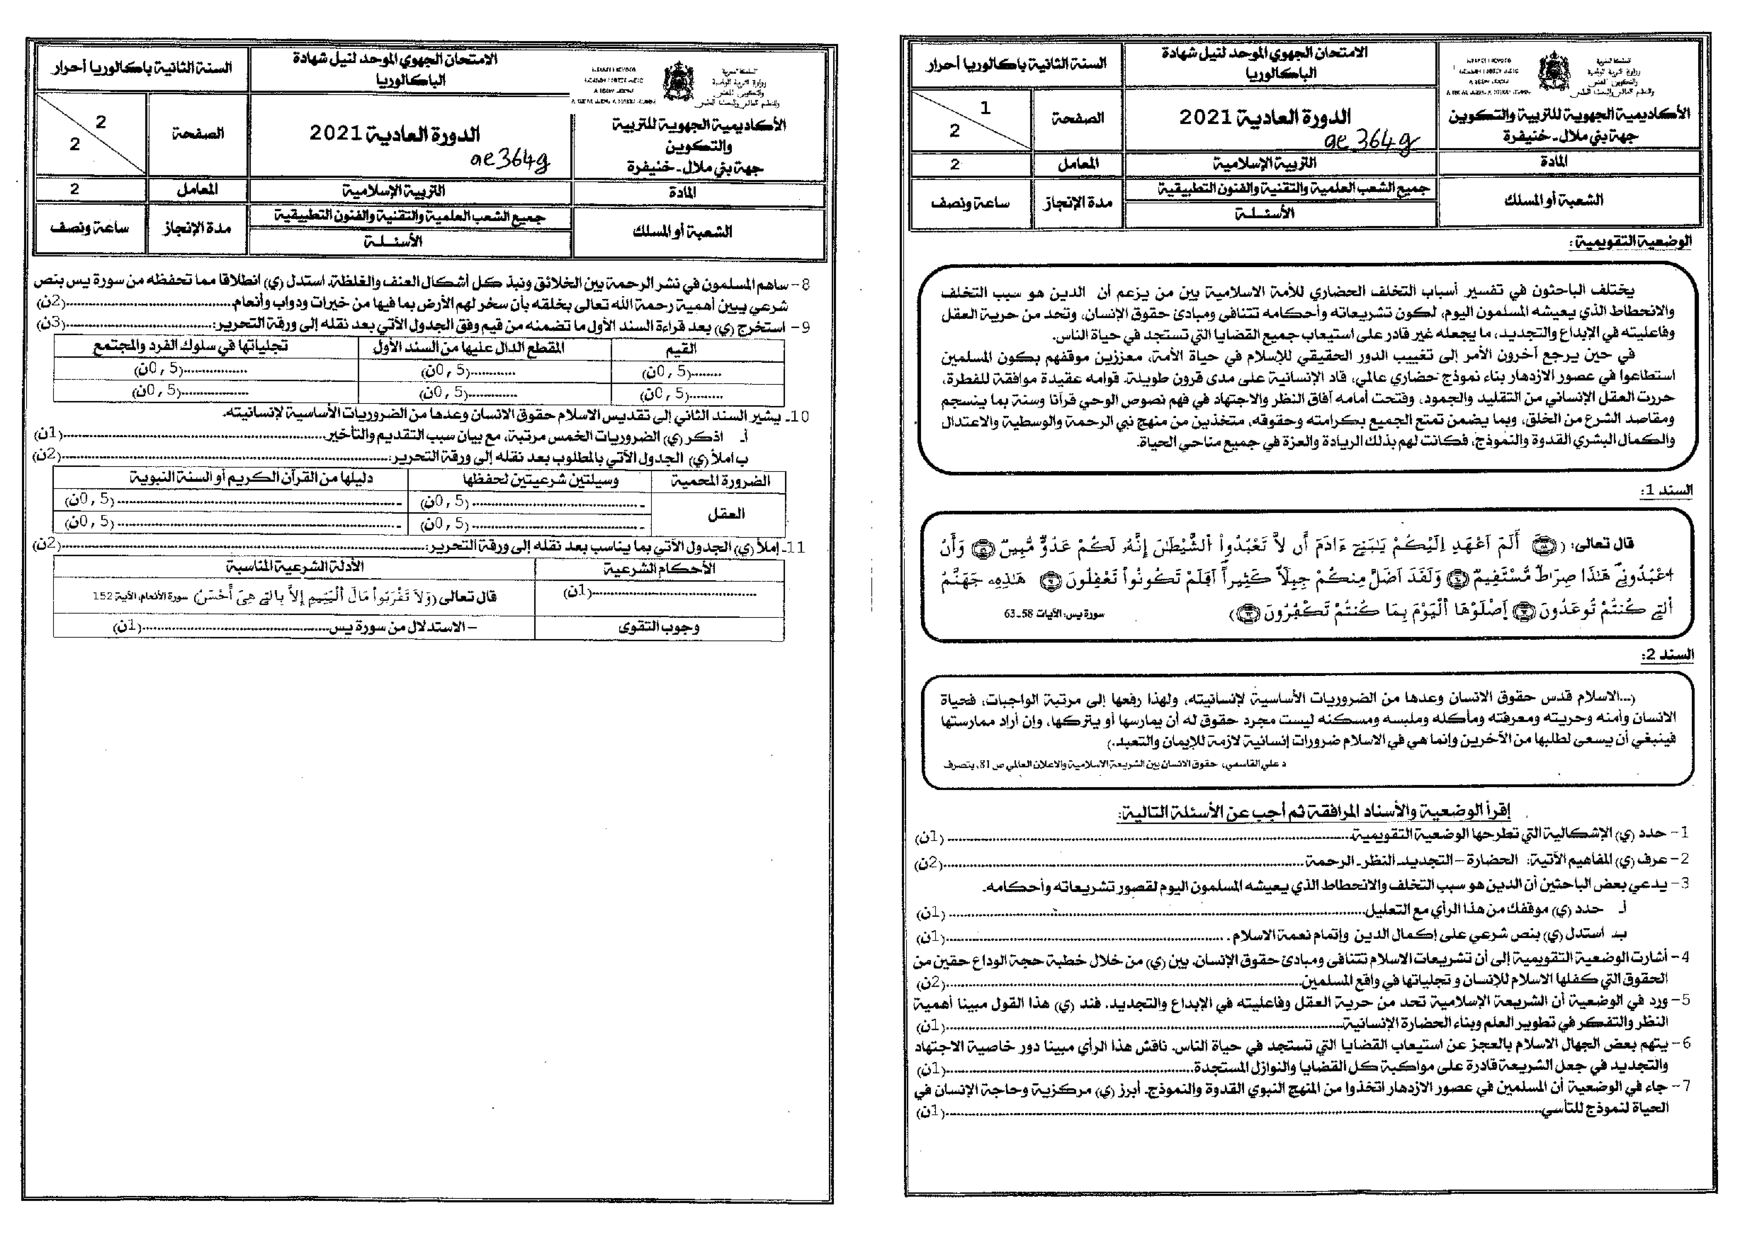 المملكة المغربية
وزارة التربية الوطنية
والتكوين المهني
والتعليم العالي والبحث العلمي
الأكاديمية الجهوية للتربية والتكوين
جهة بني ملال - خنيفرة
الامتحان الجهوي الموحد لنيل شهادة
الباكالوريا
السنة الثانية باكالوريا أحرار
الدورة العادية 2021
ae364g
الصفحة
1
2
المادة
التربية الإسلامية
المعامل
2
الشعبة أو المسلك
جميع الشعب العلمية والتقنية والفنون التطبيقية
الأسئلة
مدة الإنجاز
ساعة ونصف
الوضعية التقويمية:
يختلف الباحثون في تفسير أسباب التخلف الحضاري للأمة الاسلامية بين من يزعم أن الدين هو سبب التخلف
والانحطاط الذي يعيشه المسلمون اليوم، لكون تشريعاته وأحكامه تتنافى ومبادئ حقوق الإنسان، وتحد من حرية العقل
وفاعليته في الإبداع والتجديد، ما يجعله غير قادر على استيعاب جميع القضايا التي تستجد في حياة الناس.
في حين يرجع آخرون الأمر إلى تغييب الدور الحقيقي للإسلام في حياة الأمة، معززين موقفهم بكون المسلمين
استطاعوا في عصور الازدهار بناء نموذج حضاري عالمي، قاد الإنسانية على مدى قرون طويلة. قوامه عقيدة موافقة للفطرة،
حررت العقل الإنساني من التقليد والجمود، وفتحت أمامه آفاق النظر والاجتهاد في فهم نصوص الوحي قرآنا وسنة بما ينسجم
ومقاصد الشرع من الخلق، وبما يضمن تمتع الجميع بكرامته وحقوقه، متخذين من منهج نبي الرحمة والوسطية والاعتدال
والكمال البشري القدوة والنموذج، فكانت لهم بذلك الريادة والعزة في جميع مناحي الحياة.
السند 1:
قال تعالى: ( ۞ أَلَمَ اَعْهَدِ اِلَيْكُمْ يَٰبَنِےٓ ءَادَمَ أَن لَّا تَعْبُدُواْ الشَّيْطَٰنَ إِنَّهُۥ لَكُمْ عَدُوٌّ مُّبِينٌ وَأَنُ
اعْبُدُونِے هَٰذَا صِرَٰطٌ مُّسْتَقِيمٌ وَلَقَدَ اَضَلَّ مِنكُمْ جِبِلّاً كَثِيراً اَفَلَمْ تَكُونُواْ تَعْقِلُونَ هَٰذِهِۦ جَهَنَّمُ
اُلتِے كُنتُمْ تُوعَدُونَ اَصْلَوْهَا اَلْيَوْمَ بِمَا كُنتُمْ تَكْفُرُونَ ) سورة يس: الآيات 58-63
السند 2:
(...الاسلام قدس حقوق الانسان وعدها من الضروريات الأساسية لإنسانيته، ولهذا رفعها إلى مرتبة الواجبات، فحياة
الانسان وأمنه وحريته ومعرفته ومأكله وملبسه ومسكنه ليست مجرد حقوق له أن يمارسها أو يتركها، وإن أراد ممارستها
فينبغي أن يسعى لطلبها من الآخرين وإنما هي في الاسلام ضرورات إنسانية لازمة للإيمان والتعبد.)
د علي القاسمي، حقوق الانسان بين الشريعة الاسلامية والاعلان العالمي ص 81، بتصرف
إقرأ الوضعية والأسناد المرافقة ثم أجب عن الأسئلة التالية:
1- حدد (ي) الإشكالية التي تطرحها الوضعية التقويمية.....(1ن)
2- عرف (ي) المفاهيم الآتية: الحضارة – التجديد- النظر- الرحمة.....(2ن)
3- يدعي بعض الباحثين أن الدين هو سبب التخلف والانحطاط الذي يعيشه المسلمون اليوم لقصور تشريعاته وأحكامه.
أ- حدد (ي) موقفك من هذا الرأي مع التعليل.....(1ن)
ب- استدل (ي) بنص شرعي على إكمال الدين وإتمام نعمة الاسلام .....(1ن)
4- أشارت الوضعية التقويمية إلى أن تشريعات الاسلام تتنافى ومبادئ حقوق الإنسان. بين (ي) من خلال خطبة حجة الوداع حقين من
الحقوق التي كفلها الاسلام للإنسان و تجلياتها في واقع المسلمين.....(2ن)
5- ورد في الوضعية أن الشريعة الإسلامية تحد من حرية العقل وفاعليته في الإبداع والتجديد. فند (ي) هذا القول مبينا أهمية
النظر والتفكر في تطوير العلم وبناء الحضارة الإنسانية.....(1ن)
6- يتهم بعض الجهال الاسلام بالعجز عن استيعاب القضايا التي تستجد في حياة الناس. ناقش هذا الرأي مبينا دور خاصية الاجتهاد
والتجديد في جعل الشريعة قادرة على مواكبة كل القضايا والنوازل المستجدة.....(1ن)
7- جاء في الوضعية أن المسلمين في عصور الازدهار اتخذوا من المنهج النبوي القدوة والنموذج. أبرز (ي) مركزية وحاجة الإنسان في
الحياة لنموذج للتأسي.....(1ن)
المملكة المغربية
وزارة التربية الوطنية
والتكوين المهني
والتعليم العالي والبحث العلمي
الأكاديمية الجهوية للتربية
والتكوين
جهة بني ملال - خنيفرة
الامتحان الجهوي الموحد لنيل شهادة
الباكالوريا
السنة الثانية باكالوريا أحرار
الدورة العادية 2021
ae364g
الصفحة
2
2
المادة
التربية الإسلامية
المعامل
2
الشعبة أو المسلك
جميع الشعب العلمية والتقنية والفنون التطبيقية
الأسئلة
مدة الإنجاز
ساعة ونصف
8- ساهم المسلمون في نشر الرحمة بين الخلائق ونبذ كل أشكال العنف والغلظة. استدل (ي) انطلاقا مما تحفظه من سورة يس بنص
شرعي يبين أهمية رحمة الله تعالى بخلقه بأن سخر لهم الأرض بما فيها من خيرات ودواب وأنعام.....(2ن)
9- استخرج (ي) بعد قراءة السند الأول ما تضمنه من قيم وفق الجدول الآتي بعد نقله إلى ورقة التحرير:.....(3ن)
القيم | المقطع الدال عليها من السند الأول | تجلياتها في سلوك الفرد والمجتمع
........(0,5ن) | ...........(0,5ن) | ................(0,5ن)
........(0,5ن) | ...........(0,5ن) | ................(0,5ن)
10- يشير السند الثاني إلى تقديس الاسلام حقوق الانسان وعدها من الضروريات الأساسية لإنسانيته.
أ- اذكر (ي) الضروريات الخمس مرتبة، مع بيان سبب التقديم والتأخير.....(1ن)
ب- املأ (ي) الجدول الآتي بالمطلوب بعد نقله إلى ورقة التحرير:.....(2ن)
الضرورة المحمية | وسيلتين شرعيتين لحفظها | دليلها من القرآن الكريم أو السنة النبوية
العقل | - .....(0,5ن) | - .....(0,5ن)
- .....(0,5ن) | - .....(0,5ن)
11- إملأ (ي) الجدول الآتي بما يناسب بعد نقله إلى ورقة التحرير:.....(2ن)
الأحكام الشرعية | الأدلة الشرعية المناسبة
.....(1ن) | قال تعالى (وَلَا تَقْرَبُواْ مَالَ اَلْيَتِيمِ إِلَّا بِالتِے هِىَ أَحْسَنُ) سورة الأنعام، الآية 152
وجوب التقوى | – الاستدلال من سورة يس.....(1ن)